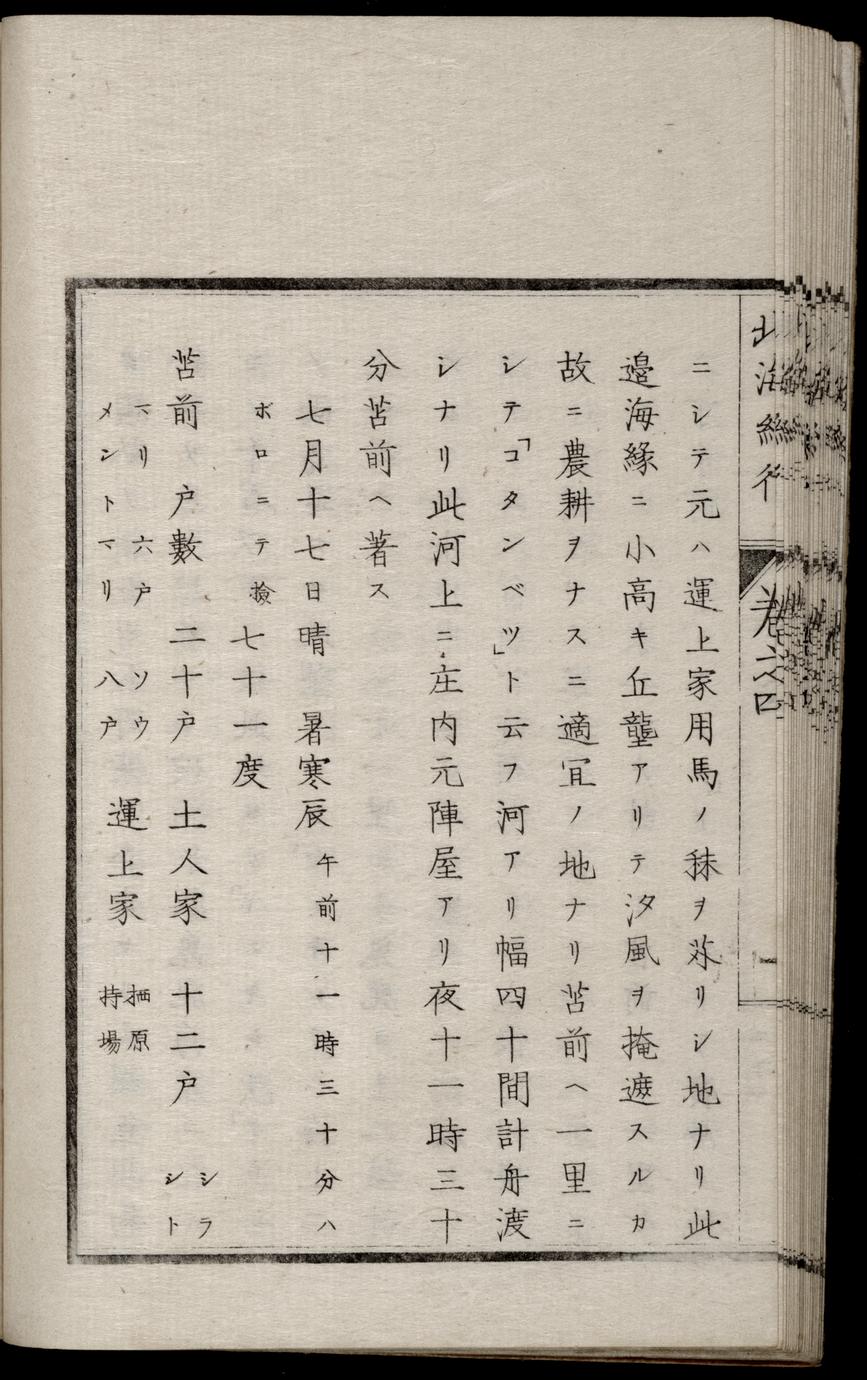 北海紀行 卷之四
ニシテ元ハ運上家用馬ノ秣ヲ苅リシ地ナリ此
邉海緣ニ小高キ丘壟アリテ汐風ヲ掩遮スルカ
故ニ農耕ヲナスニ適宜ノ地ナリ苫前ヘ一里ニ
シテ「コタンベツ」ト云フ河アリ幅四十間計舟渡
シナリ此河上ニ庄内元陣屋アリ夜十一時三十
分苫前ヘ著ス
七月十七日晴 暑寒辰 午前十一時三十分ハ
ボロニテ撿 七十一度
苫前 戸數 二十戸 土人家 十二戸 シラ
シト
マリ 六戸 ソウ
メントマリ 八戸 運上家 栖原
持場